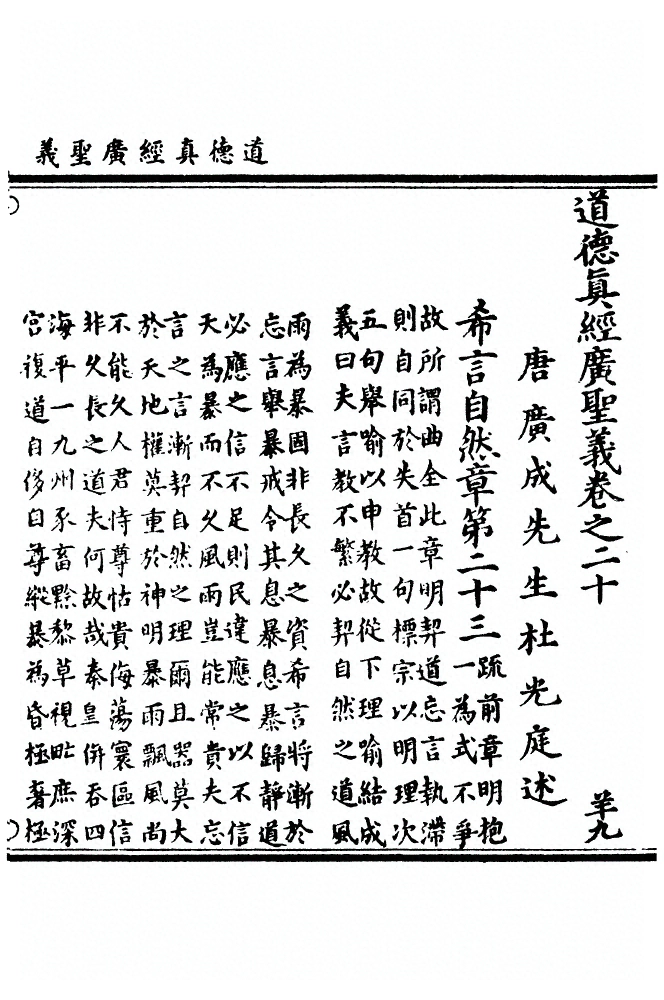 道德真經廣聖義
道德眞經廣聖義卷之二十
羊九
唐廣成先生杜光庭述
希言自然章第二十三
疏前章明抱
一為式不爭
故所謂曲全此章明契道忘言執滯
則自同於失首一句標宗以明理次
五句舉喻以申教故從下理喻結成
義曰夫言教不繁必契自然之道風
雨為暴固非長久之資希言將漸於
忘言舉暴戒令其息暴息暴歸靜道
必應之信不足則民違應之以不信
天為暴而不久風雨豈能常貴夫忘
言之言漸契自然之理爾且器莫大
於天地權莫重於神明暴雨飄風尚
不能久人君恃尊怙貴侮蕩寰區信
非久長之道夫何故哉秦皇併吞四
海平一九州豕畜黔黎草視甿庶深
宮複道自侈自尊縱暴為昏極奢極